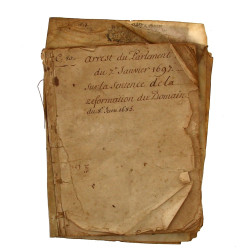 arrest du Parlement
du 7e Janvier 1697.
Sur la Sentence de la
reformation du Domaine
du 8e Juin 1686.